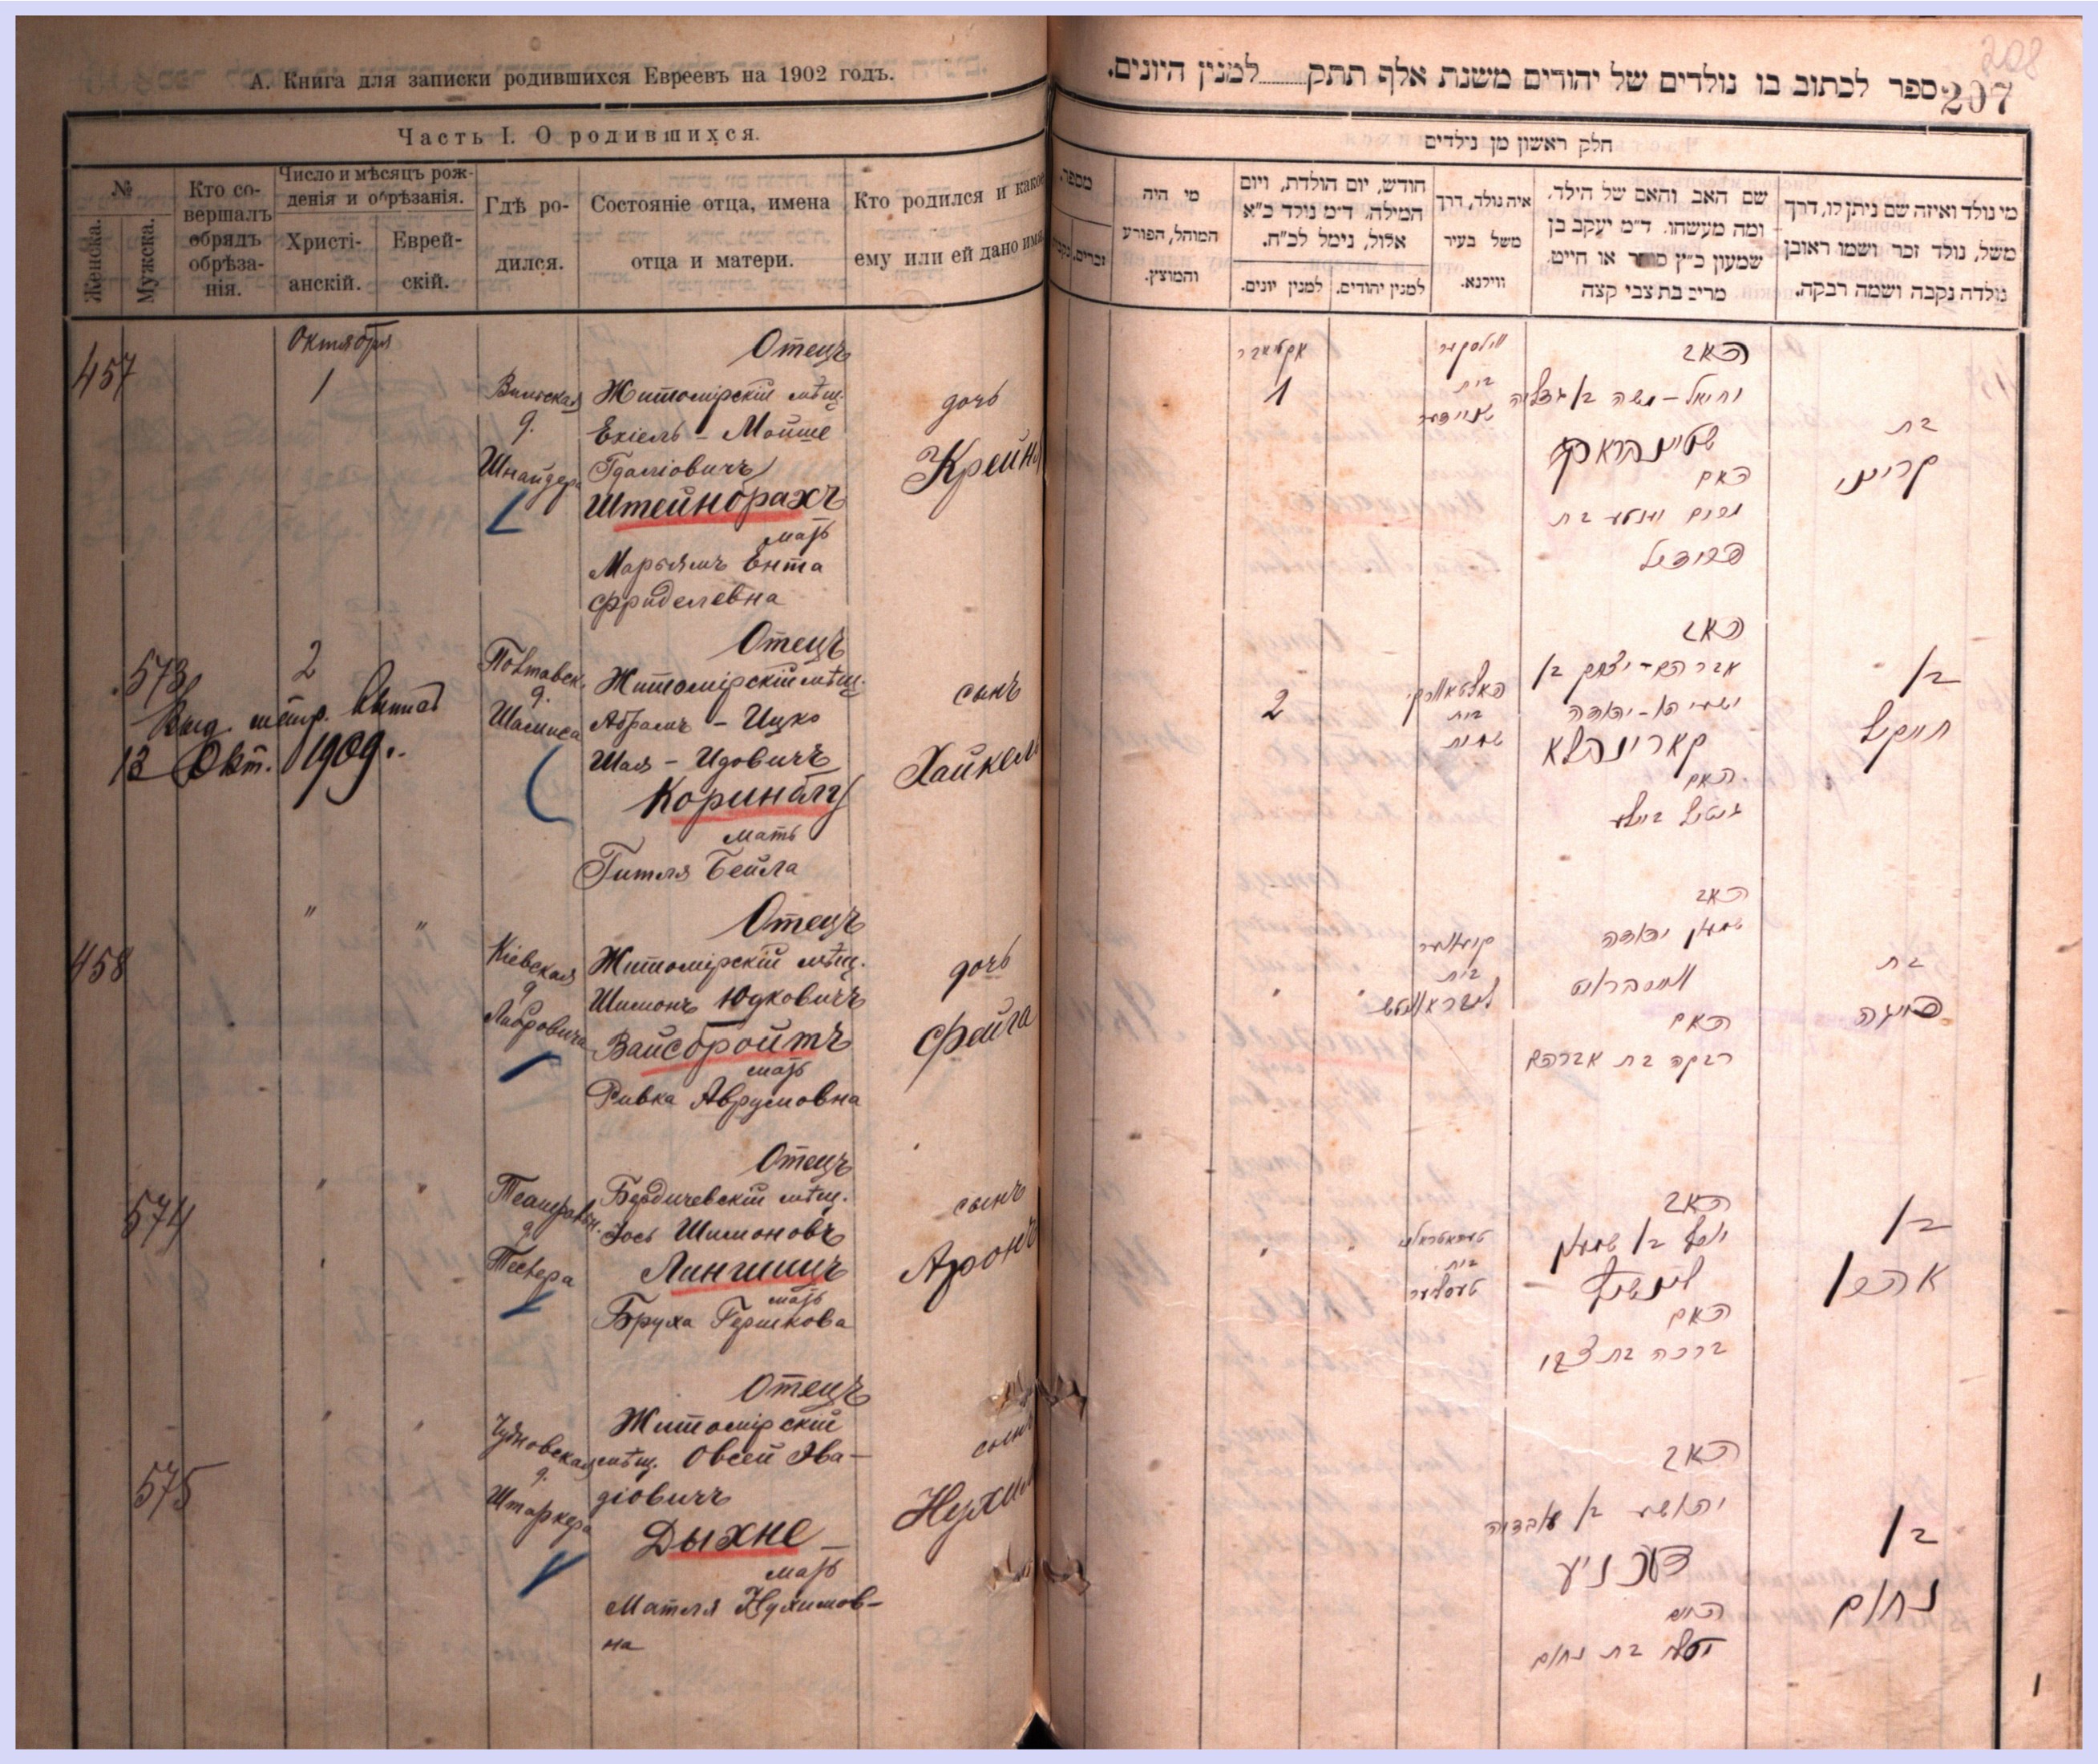 А. Книга для записки родившихся Евреевъ на 1902 годъ.
Часть I. О родившихся.
№
Женска.
Мужска.
Кто со-
вершалъ
обрядъ
обрѣза-
нія.
Число и мѣсяцъ рож-
денія и обрѣзанія.
Христі-
анскій.
Еврей-
скій.
Гдѣ ро-
дился.
Состояніе отца, имена
отца и матери.
Кто родился и какое
ему или ей дано имя.
457
Октября
1
Вильская
д.
Шнайдера
Отецъ
Житомірскій мѣщ.
Ехіель - Мойше
Гдаліовичъ
Штейнбрахъ
мать
Марьямъ Ента
Фриделевна
дочь
Крейна
573
Выд. метр. выпись
13 Окт. 1909.
2
Полтавск.
д.
Отецъ
Житомірскій мѣщ.
Абрамъ - Ицко
Шая - Идовичъ
мать
Гитля Бейла
сынъ
Хайкель
458
" "
Кіевская
д.
Либровича
Отецъ
Житомірскій мѣщ.
Шимонъ Юдковичъ
Вайсбройтъ
мать
Ривка Аврумовна
дочь
Фейга
574
" "
д.
Теслера
Отецъ
Бердичевскій мѣщ.
Іось Шимоновъ
мать
Бруха Гершкова
сынъ
Аронъ
575
" "
Чудновская
д.
Штаркера
Отецъ
Житомірскій
мѣщ. Овсей Ова-
діовичъ
Дыхне
мать
Матля Нухимов-
на
сынъ
Нухим
208
207
ספר לכתוב בו נולדים של יהודים משנת אלף תתק......למנין היונים.
חלק ראשון מן נילדים
מי נולד ואיזה שם ניתן לו, דרך
משל, נולד זכר ושמו ראובן
נולדה נקבה ושמה רבקה.
שם האב והאם של הילד.
ומה מעשהו. ד״מ יעקב בן
שמעון כ״ץ סוחר או חייט.
מרים בת צבי קצה
איה נולד, דרך
משל בעיר
ווילנא.
חודש, יום הולדת, ויום
המילה. ד״מ נולד כ״א
אלול, נימל לכ״ח.
למנין יהודים.
למנין יונים.
מי היה
המוהל, הפורע
והמוצץ.
מספר.
זכרים,
בת
קריינע
האב
יחיאל - משה בן גדליה
האם
מרים יענטע בת
פריידיל
בית
שניידער
אקטאבר
1
בן
חייקיל
האב
אברהם - יצחק בן
ישעי׳ - יהודה
האם
גיטיל ביילע
בית
2
בת
פייגה
האב
שמעון יהודה
האם
רבקה בת אברהם
בית
בן
אהרן
האב
יוסף בן שמעון
האם
ברכה בת צבי
בית
טעסליער
בן
נחום
האב
יהושע בן עובדיה
האם
בת נחום
1